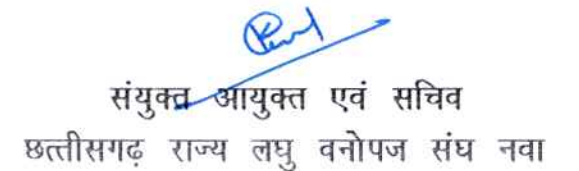 संयुक्त आयुक्त एवं सचिव
छत्तीसगढ़ राज्य लघु वनोपज संघ नवा